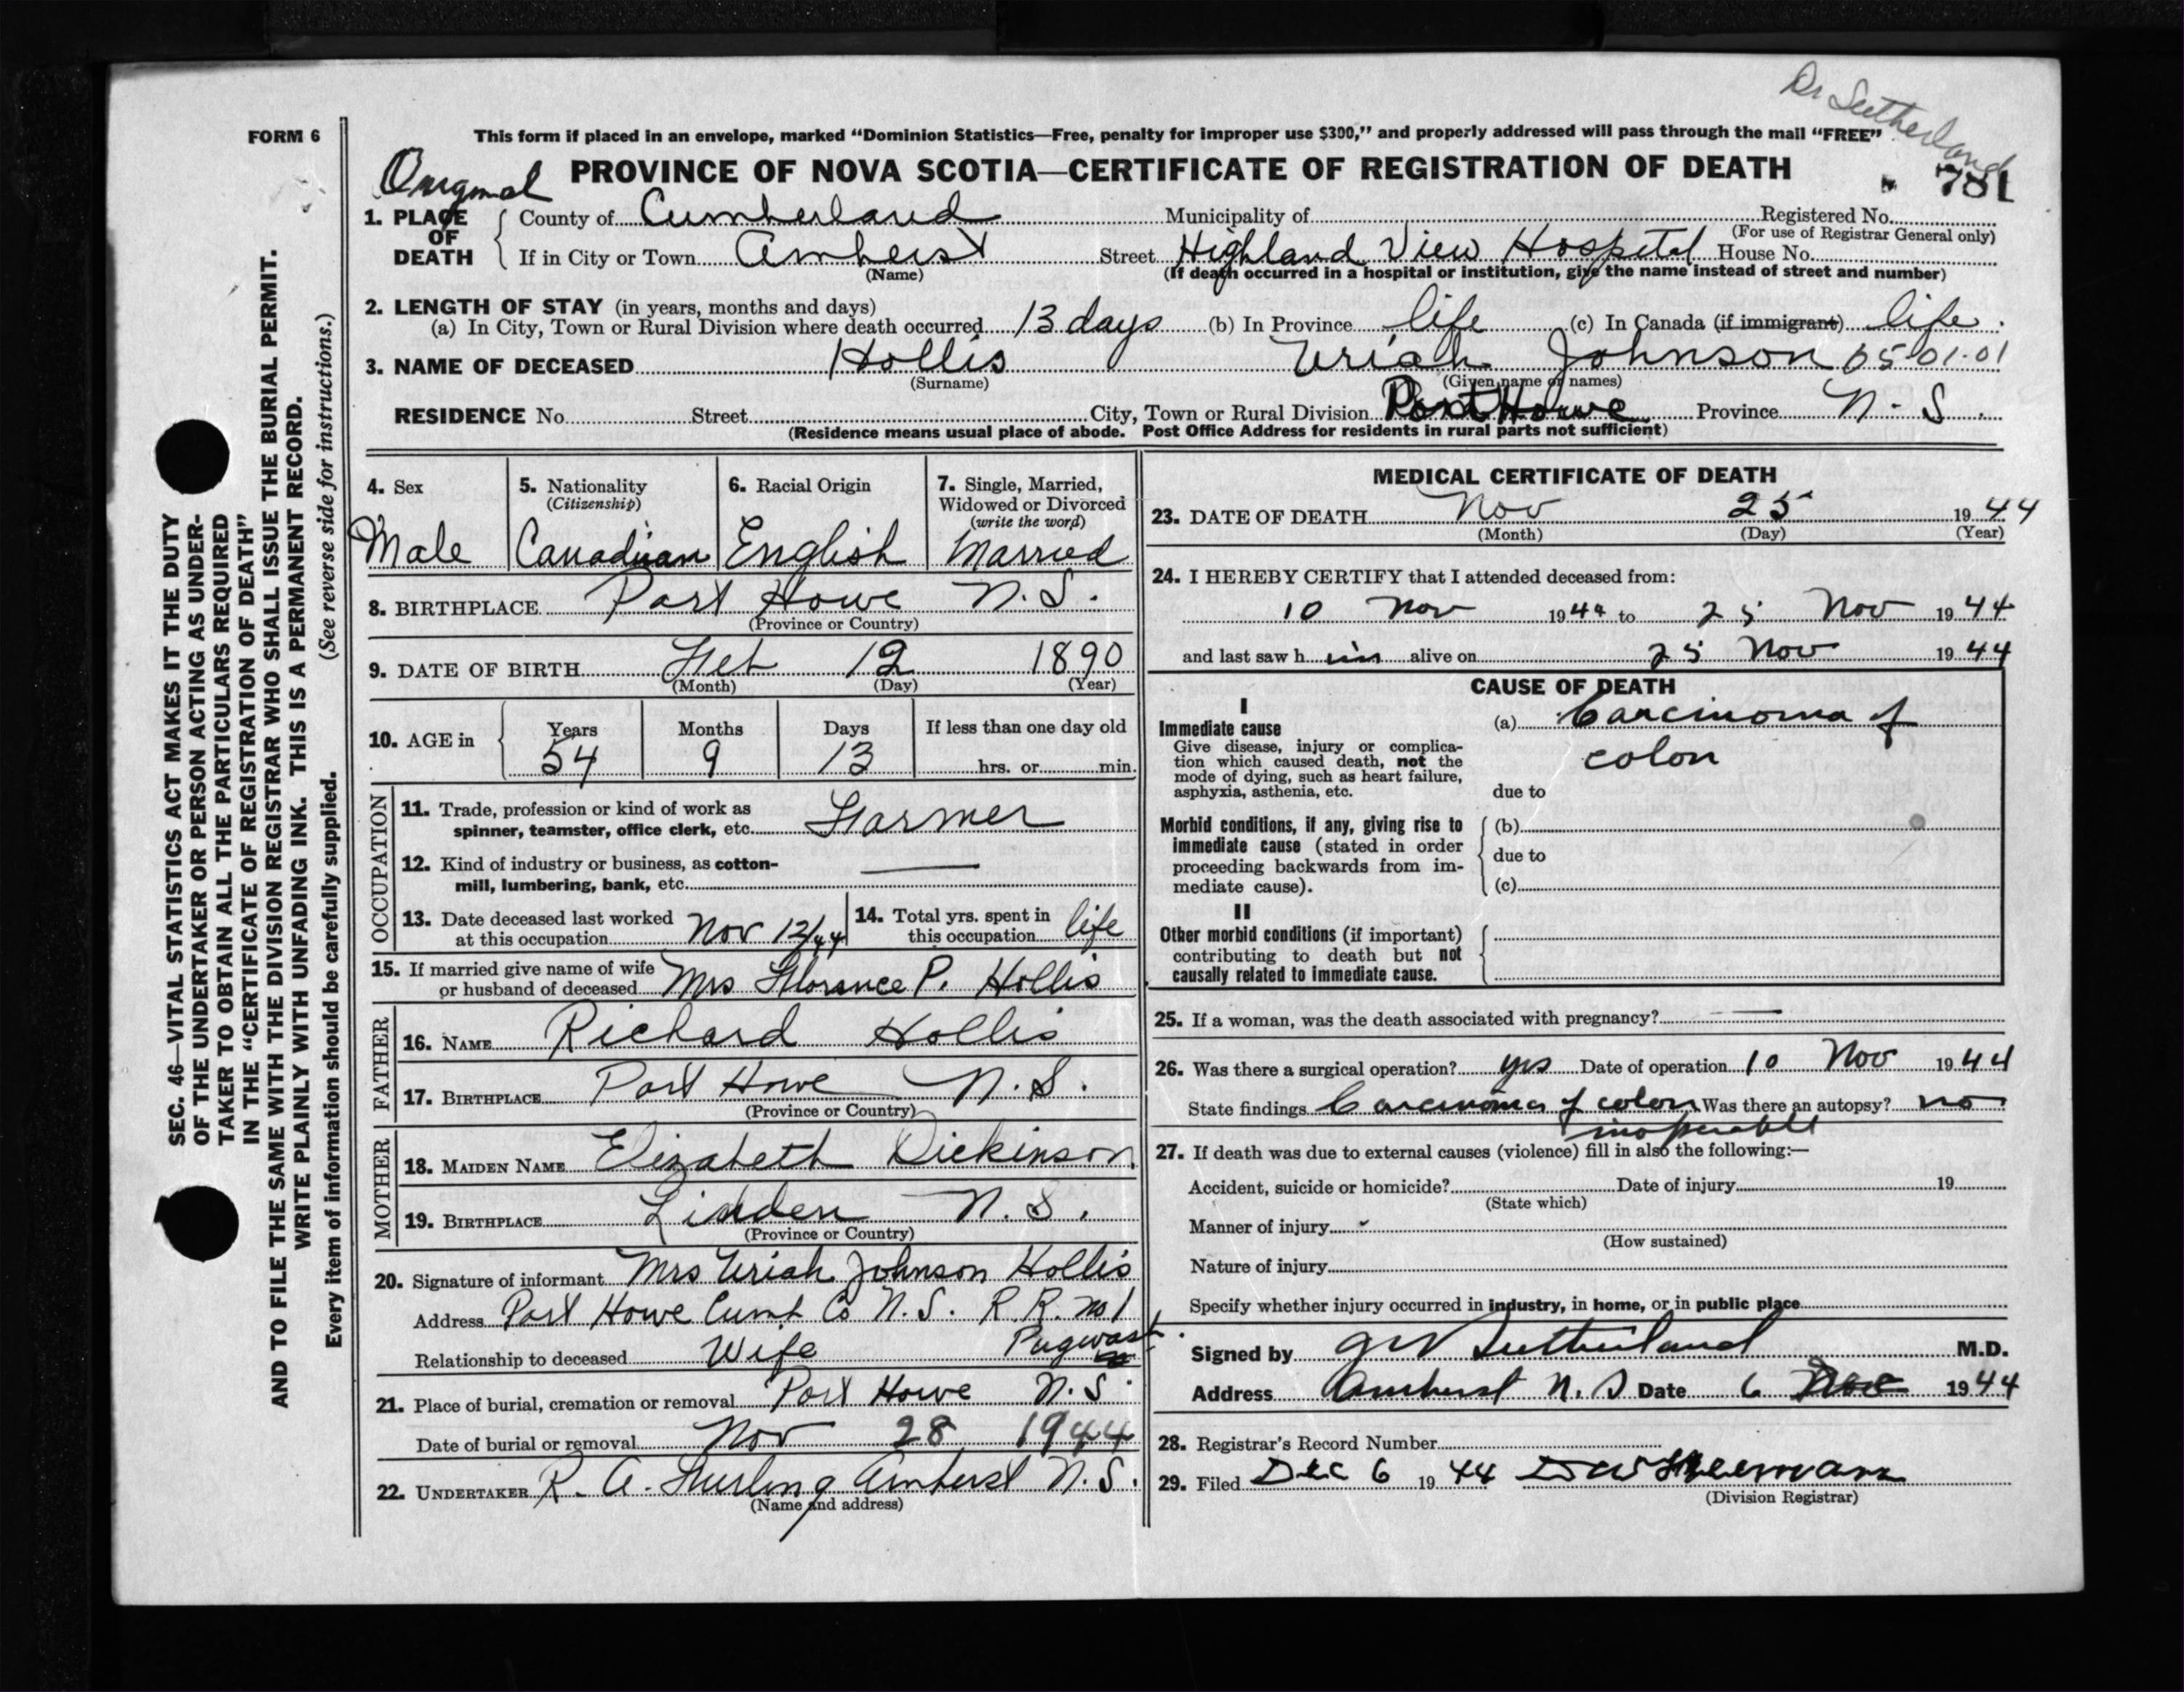 Dr Sutherland
FORM 6
This form if placed in an envelope, marked “Dominion Statistics—Free, penalty for improper use $300,” and properly addressed will pass through the mail “FREE”
Original PROVINCE OF NOVA SCOTIA—CERTIFICATE OF REGISTRATION OF DEATH
781
1. PLACE OF DEATH
County of Cumberland Municipality of Registered No.
(For use of Registrar General only)
If in City or Town Amherst Street Highland View Hospital House No.
(Name) (If death occurred in a hospital or institution, give the name instead of street and number)
2. LENGTH OF STAY (in years, months and days)
(a) In City, Town or Rural Division where death occurred 13 days (b) In Province life (c) In Canada (if immigrant) life.
3. NAME OF DECEASED Hollis Uriah Johnson 05-01-01
(Surname) (Given name or names)
RESIDENCE No. Street City, Town or Rural Division Port Howe Province N.S.
(Residence means usual place of abode. Post Office Address for residents in rural parts not sufficient)
4. Sex 5. Nationality 6. Racial Origin 7. Single, Married,
(Citizenship) Widowed or Divorced
(write the word)
Male Canadian English Married
8. BIRTHPLACE Port Howe N.S.
(Province or Country)
9. DATE OF BIRTH Feb 12 1890
(Month) (Day) (Year)
10. AGE in Years Months Days If less than one day old
54 9 13 hrs. or min.
OCCUPATION
11. Trade, profession or kind of work as
spinner, teamster, office clerk, etc. Farmer
12. Kind of industry or business, as cotton-
mill, lumbering, bank, etc. —
13. Date deceased last worked
at this occupation Nov 12/44
14. Total yrs. spent in
this occupation life
15. If married give name of wife
or husband of deceased Mrs Florence P. Hollis
FATHER
16. NAME Richard Hollis
17. BIRTHPLACE Port Howe N.S.
(Province or Country)
MOTHER
18. MAIDEN NAME Elizabeth Dickinson
19. BIRTHPLACE Linden N.S.
(Province or Country)
20. Signature of informant Mrs Uriah Johnson Hollis
Address Port Howe Cumb Co N.S. R.R. no 1
Pugwash
Relationship to deceased Wife
21. Place of burial, cremation or removal Port Howe N.S.
Date of burial or removal Nov 28 1944
22. UNDERTAKER R. A. Amherst N.S.
(Name and address)
MEDICAL CERTIFICATE OF DEATH
23. DATE OF DEATH Nov 25 1944
(Month) (Day) (Year)
24. I HEREBY CERTIFY that I attended deceased from:
10 Nov 1944 to 25 Nov 1944
and last saw him alive on 25 Nov 1944
CAUSE OF DEATH
I
Immediate cause
Give disease, injury or complica-
tion which caused death, not the
mode of dying, such as heart failure,
asphyxia, asthenia, etc.
(a) Carcinoma of
colon
due to
Morbid conditions, if any, giving rise to
immediate cause (stated in order
proceeding backwards from im-
mediate cause).
(b)
due to
(c)
II
Other morbid conditions (if important)
contributing to death but not
causally related to immediate cause.
25. If a woman, was the death associated with pregnancy? —
26. Was there a surgical operation? yes Date of operation 10 Nov 1944
State findings Carcinoma of colon Was there an autopsy? no
inoperable
27. If death was due to external causes (violence) fill in also the following:—
Accident, suicide or homicide? Date of injury 19
(State which)
Manner of injury
(How sustained)
Nature of injury
Specify whether injury occurred in industry, in home, or in public place
Signed by Sutherland M.D.
Address Amherst N.S Date 6 1944
28. Registrar's Record Number
29. Filed Dec 6 1944
(Division Registrar)
SEC. 46—VITAL STATISTICS ACT MAKES IT THE DUTY
OF THE UNDERTAKER OR PERSON ACTING AS UNDER-
TAKER TO OBTAIN ALL THE PARTICULARS REQUIRED
IN THE “CERTIFICATE OF REGISTRATION OF DEATH”
AND TO FILE THE SAME WITH THE DIVISION REGISTRAR WHO SHALL ISSUE THE BURIAL PERMIT.
WRITE PLAINLY WITH UNFADING INK. THIS IS A PERMANENT RECORD.
Every item of information should be carefully supplied. (See reverse side for instructions.)